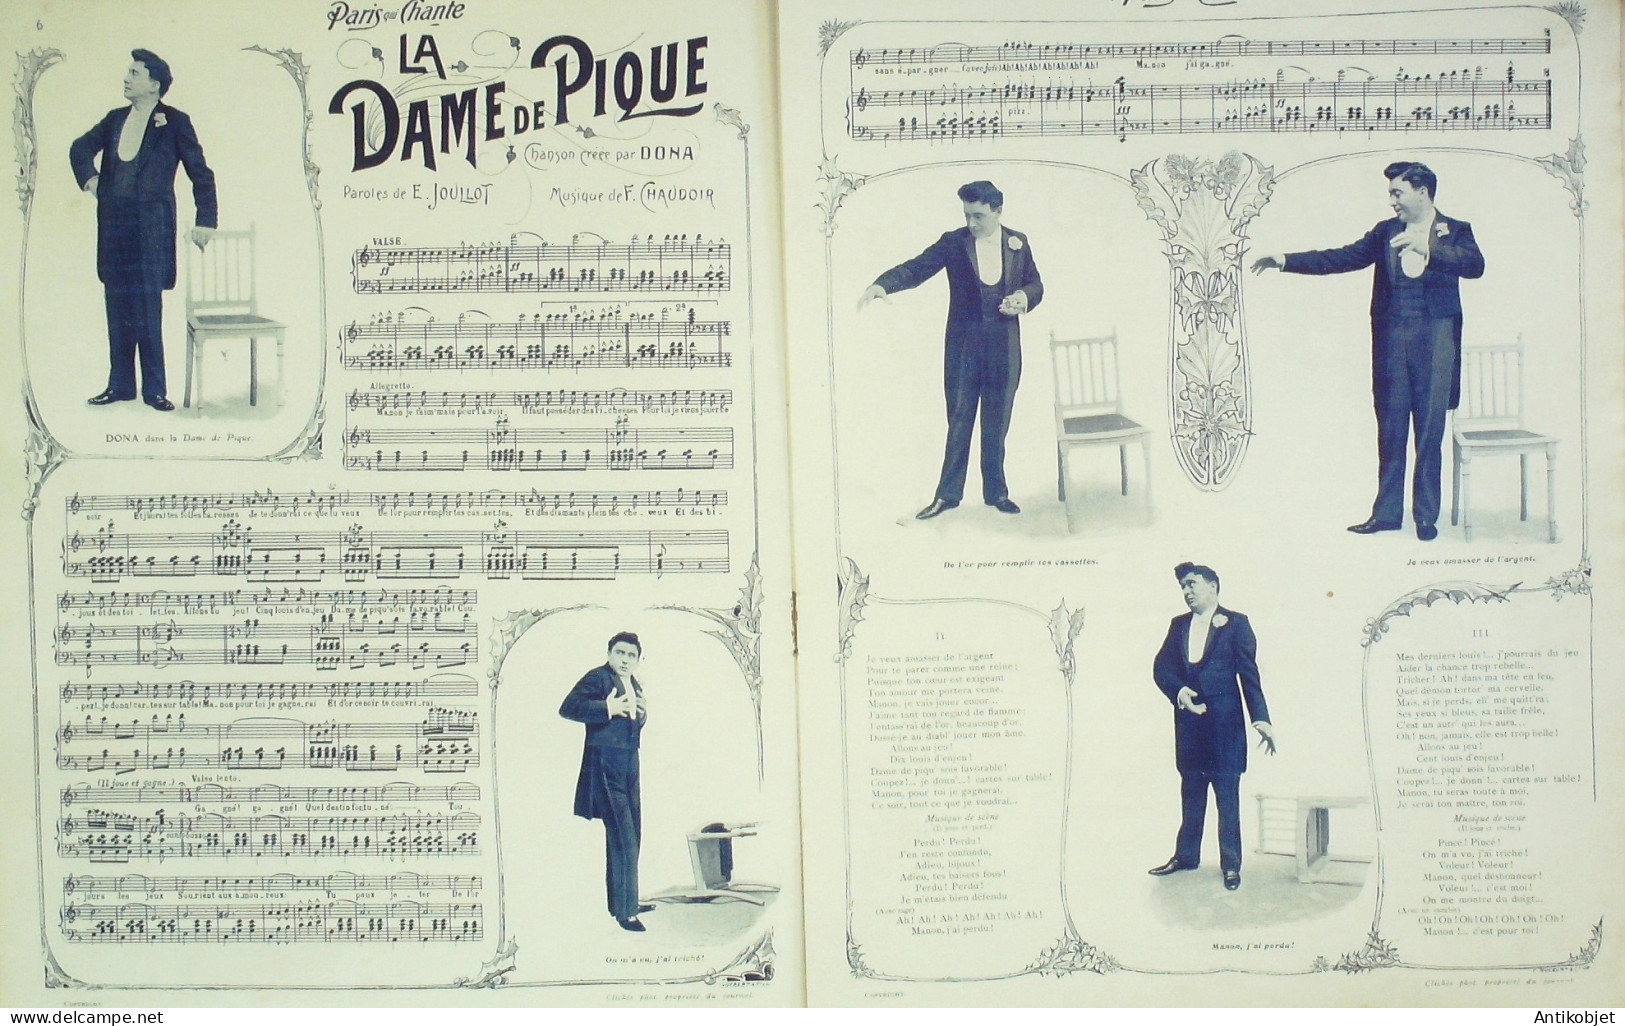 6
Paris qui Chante
LA
DAME DE PIQUE
Chanson créée par DONA
Paroles de E. JOULLOT
Musique de F. CHAUDOIR
DONA dans la Dame de Pique.
VALSE.
ff
ff
1ª
2ª
Allegretto.
Manon je t'aim' mais pour t'a-voir Il faut posséder des ri-chesses Pour toi je viens jouer ce
soir Et j'aurai tes folles ca-resses Je te donn'rai ce que tu veux De l'or pour remplir tes cas-set-tes, Et des diamants plein tes che-veux Et des bi-
-joux et des toi-let-tes. Allons au jeu! Cinq louis d'en-jeu Da-me de piqu' sois fa-vo-rable! Cou-
-pez!.. je donn'! car-tes sur table! Ma-non pour toi je gagne-rai Et d'or ce soir te couvri-rai
(Il joue et gagne.)
Valse lente.
Ga-gné! ga-gné! Quel destin for-tu-né: Tou-
-jours les jeux Sou-rient aux a-mou-reux: Tu peux je-ter De l'or
On m'a vu, j'ai triché!
COPYRIGHT.
Clichés phot. propriété du journal.
sans é-par-gner (avec joie) Ah! Ah! Ah! Ah! Ah! Ah! Ah! Ma-non j'ai ga-gné.
pizz.
fff
ff
De l'or pour remplir tes cassettes.
Je veux amasser de l'argent.
II
Je veux amasser de l'argent
Pour te parer comme une reine;
Puisque ton cœur est exigeant
Ton amour me portera veine.
Manon, je vais jouer encor...
J'aime tant ton regard de flamme;
J'entass'rai de l'or, beaucoup d'or,
Dussé-je au diabl' jouer mon âme.
Allons au jeu!
Dix louis d'enjeu!
Dame de piqu' sois favorable!
Coupez!... je donn'...! cartes sur table!
Manon, pour toi je gagnerai,
Ce soir, tout ce que je voudrai...
Musique de scène
(Il joue et perd.)
Perdu! Perdu!
J'en reste confondu,
Adieu, bijoux!
Adieu, tes baisers fous!
Perdu! Perdu!
Je m'étais bien défendu
(Avec rage)
Ah! Ah! Ah! Ah! Ah! Ah! Ah!
Manon, j'ai perdu!
Manon, j'ai perdu!
III
Mes derniers louis!... j'pourrais du jeu
Aider la chance trop rebelle...
Tricher! Ah! dans ma tête en feu,
Quel démon tortur' ma cervelle.
Mais, si je perds, ell' me quitt'ra;
Ses yeux si bleus, sa taille frêle,
C'est un autr' qui les aura...
Oh! non, jamais, elle est trop belle!
Allons au jeu!
Cent louis d'enjeu!
Dame de piqu' sois favorable!
Coupez!... je donn'!... cartes sur table!
Manon, tu seras toute à moi,
Je serai ton maître, ton roi.
Musique de scène
(Il joue et triche.)
Pincé! Pincé!
On m'a vu, j'ai triché!
Voleur! Voleur!
Manon, quel déshonneur!
Voleur!... c'est moi!
On me montre du doigt...
(Avec un sanglot)
Oh! Oh! Oh! Oh! Oh! Oh! Oh!
Manon!... c'est pour toi!
COPYRIGHT.
Clichés phot. propriété du journal.
Antikobjet